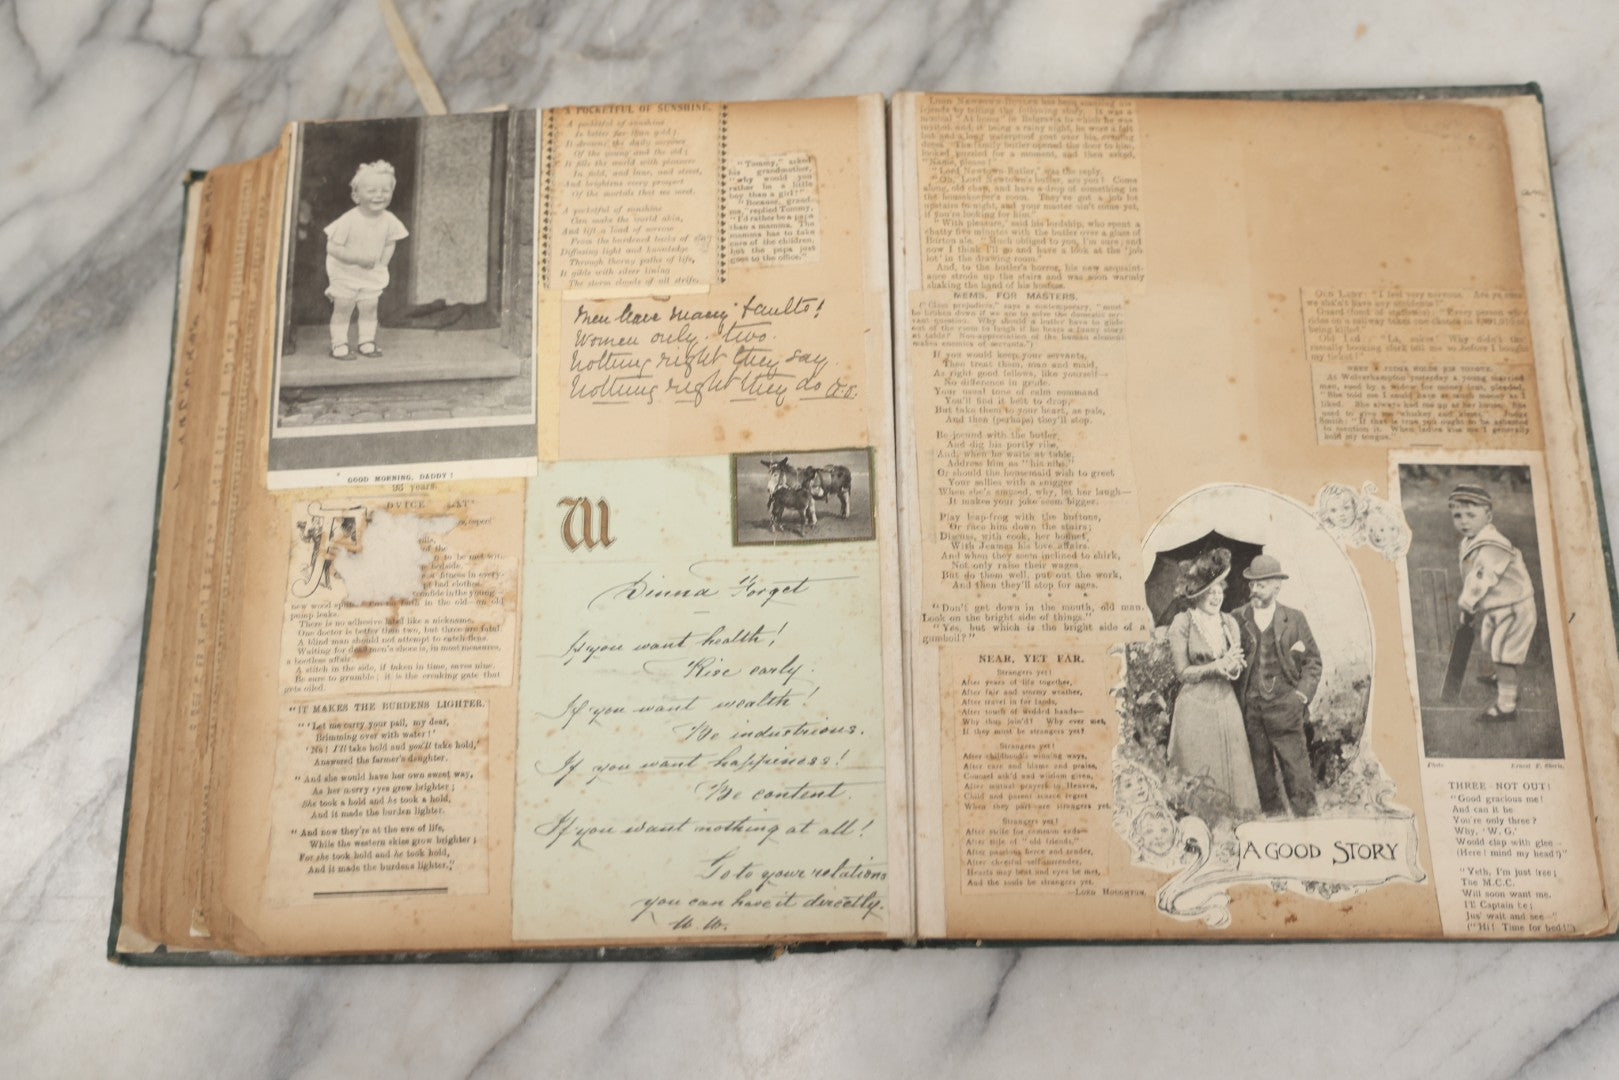 "GOOD MORNING, DADDY!
98 years.
A POCKETFUL OF SUNSHINE.
A pocketful of sunshine
Is better far than gold;
It drowns the daily sorrows
Of the young and the old;
It fills the world with pleasure
In field, and lane, and street,
And brightens every prospect
Of the mortals that we meet.
A pocketful of sunshine
Can make the world akin,
And lift a load of sorrow
From the burdened backs of
Diffusing light and knowledge
Through thorny paths of life,
It gilds with silver lining
The storm clouds of all strife.
"Tommy," asked
his grandmother,
"why would you
rather be a little
boy than a girl?"
"Because, grand-
ma," replied Tommy,
"I'd rather be a papa
than a mamma. The
mamma has to take
care of the children,
but the papa just
goes to the office."
Men have many faults!
Women only two.
Nothing right they say
Nothing right they do
W
Dinna Forget
If you want health!
Rise early.
If you want wealth!
Be industrious.
If you want happiness!
Be content.
If you want nothing at all!
Go to your relations
you can have it directly.
of the
to be met with
bedside.
fitness in every-
bad clothes.
confide in the young
new wood
in the old
old
pump leaks.
There is no adhesive label like a nickname.
One doctor is better than two, but three are fatal
A blind man should not attempt to catch fleas.
Waiting for dead men's shoes is, in most measures,
a bootless affair.
A stitch in the side, if taken in time, saves nine.
Be sure to grumble; it is the creaking gate that
gets oiled.
"IT MAKES THE BURDENS LIGHTER.
"'Let me carry your pail, my dear,
Brimming over with water!'
'No! I'll take hold and you'll take hold,'
Answered the farmer's daughter.
"And she would have her own sweet way,
As her merry eyes grew brighter;
She took a hold and he took a hold,
And it made the burden lighter.
"And now they're at the eve of life,
While the western skies grow brighter;
For she took hold and he took hold,
And it made the burdens lighter."
LORD Newtown-Butler has been amusing his
friends by telling the following story. It was a
musical "At home" in Belgravia to which he was
invited, and, it being a rainy night, he wore a felt
hat and a long waterproof coat over his evening
dress. The family butler opened the door to him,
looked puzzled for a moment, and then asked,
"Name, please!"
"Lord Newtown-Butler," was the reply.
"Oh, Lord Newtown's butler, are you! Come
along, old chap, and have a drop of something in
the housekeeper's room. They've got a job lot
upstairs to-night, and your master ain't come yet,
if you're looking for him."
"With pleasure," said his lordship, who spent a
chatty five minutes with the butler over a glass of
Burton ale. "Much obliged to you, I'm sure; and
now I think I'll go and have a look at the 'job
lot' in the drawing room."
And, to the butler's horror, his new acquaint-
ance strode up the stairs and was soon warmly
shaking the hand of his hostess.
MEMS. FOR MASTERS.
("Class prejudice," says a contemporary, "must
be broken down if we are to solve the domestic ser-
vant question. Why should a butler have to glide
out of the room to laugh if he hears a funny story
at table? Non-appreciation of the human element
makes enemies of servants.")
If you would keep your servants,
Then treat them, man and maid,
As right good fellows, like yourself—
No difference in grade.
Your usual tone of calm command
You'll find it best to drop;
But take them to your heart, as pals,
And then (perhaps) they'll stop.
Be jocund with the butler,
And dig his portly ribs,
And, when he waits at table,
Address him as "his nibs."
Or should the housemaid wish to greet
Your sallies with a snigger
When she's amused, why, let her laugh—
It makes your joke seem bigger.
Play leap-frog with the buttons,
Or race him down the stairs;
Discuss, with cook, her bonnet,
With Jeames his love affairs.
And when they seem inclined to shirk,
Not only raise their wages,
But do them well, put out the work,
And then they'll stop for ages.
"Don't get down in the mouth, old man.
Look on the bright side of things."
"Yes, but which is the bright side of a
gumboil?"
NEAR, YET FAR.
Strangers yet!
After years of life together,
After fair and stormy weather,
After travel in far lands,
After touch of wedded hands—
Why thus join'd? Why ever met,
If they must be strangers yet?
Strangers yet!
After childhood's winning ways,
After care and blame and praise,
Counsel ask'd and wisdom given,
After mutual prayers to Heaven,
Child and parent scarce regret
When they part—are strangers yet.
Strangers yet!
After strife for common ends—
After title of "old friends,"
After passions fierce and tender,
After cheerful self-surrender,
Hearts may beat and eyes be met,
And the souls be strangers yet.
—LORD HOUGHTON.
OLD LADY: "I feel very nervous. Are ye sure
we sha'n't have any accidents?"
Old Lady: "La, sakes! Why didn't the
my ticket!"
WHEN A JUDGE HOLDS HIS TONGUE.
At Wolverhampton yesterday a young married
man, sued by a widow for money lent, pleaded,
"She told me I could have as much money as I
liked. She always had me up at her house. She
used to give me whiskey and kisses." Judge
Smith: "If that is true you ought to be ashamed
to mention it. When ladies kiss me I generally
hold my tongue."
A GOOD STORY
Photo
Ernest F.
THREE—NOT OUT!
"Good gracious me!
And can it be
You're only three?
Why, 'W. G.'
Would clap with glee—
(Here! mind my head!)"
"Yeth, I'm just free;
The M.C.C.
Will soon want me.
I'll Captain be;
Jus' wait and see—"
("Hi! Time for bed!")